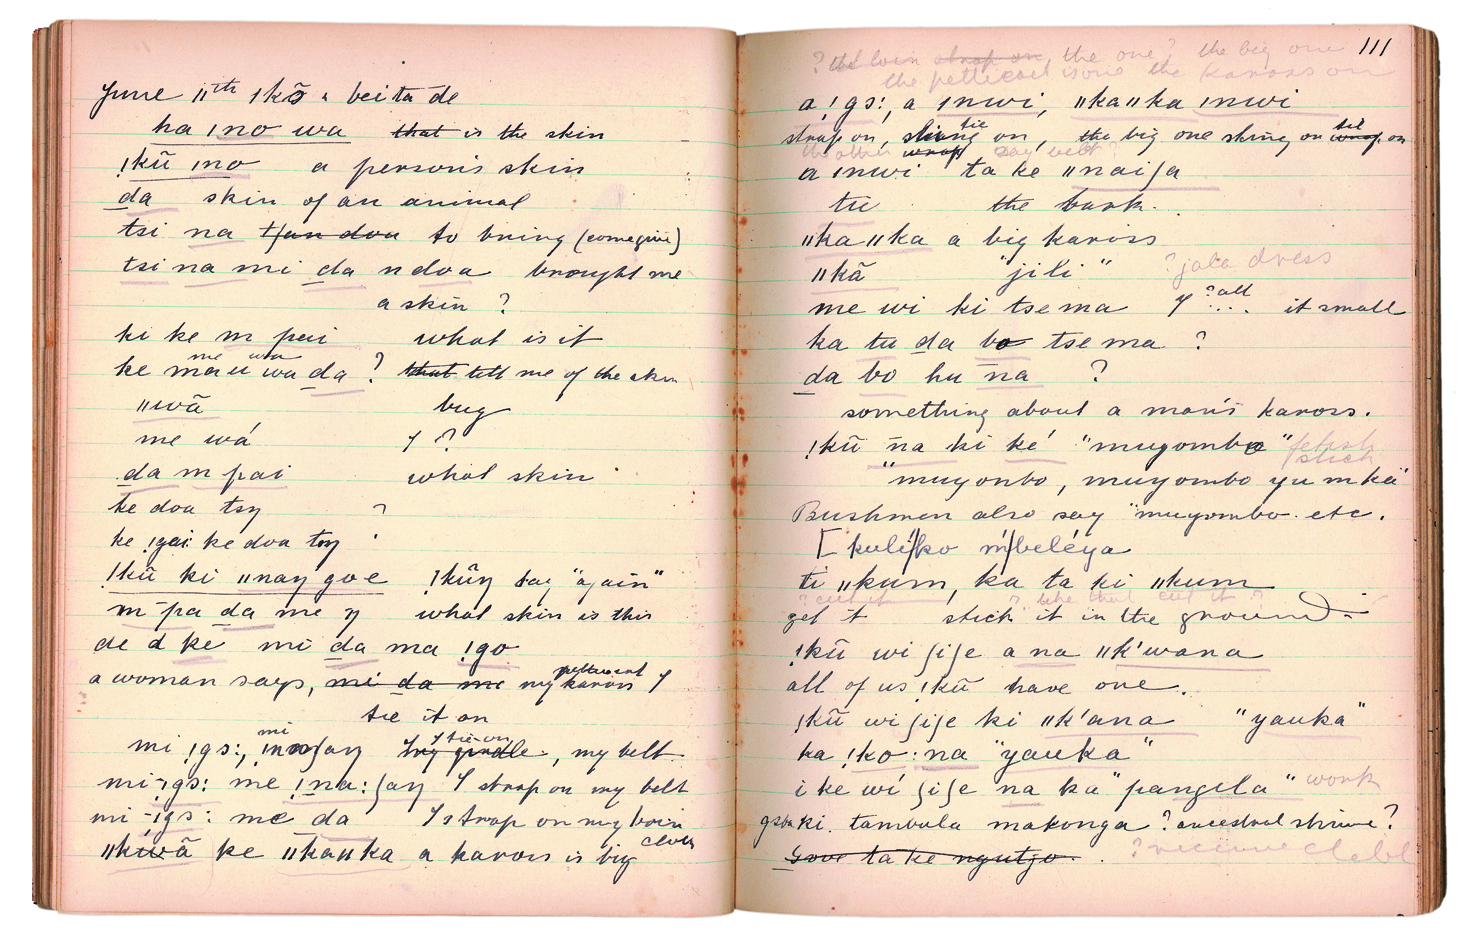 June 11th ǀkō beita de
ha ǀno wa that is the skin
ǃkū ǀno a person's skin
da skin of an animal
tsi na tʃan doa to bring (come give)
tsi na mi da n doa brought me
a skin ?
ki ke m pai what is it
me wa
ke ma u wa da ? that tell me of the skin
ǁwā bug
me wá I ?
da m pai what skin
te doa tsy ?
ke ǃgai ke doa toy ?
ǃkū ki ǁnaŋ goe ǃkūŋ say "again"
m pa da me ŋ what skin is this
de d ke mi da ma ǃgo
petticoat
a woman says, mi da me my kaross I
tie it on
mi I tie on
mi ǀgs:, ǀnaʃaŋ my girdle, my belt
mi-ǀgs: me ǀna:ʃaŋ I strap on my belt
mi-ǀgs: me da I strap on my loin
cloth
ǁkwā ke ǁkaǁka a kaross is big
111
? the loin strap on, the one? the big one
the petticoat is one the kaross one
a ǀgs: a ǀnwi, ǁkaǁka ǀnwi
tie tie
strap on, string on, the big one string on wrap on
the other wrap say belt ?
a ǀnwi ta ke ǁnaiʃa
tū the bark.
ǁkaǁka a big kaross
ǁkā "jili" ? jala dress
? all
me wi ki tsema I .... it small
ka tu da bo tsema ?
da bo hu na ?
something about a man's kaross.
ǃkū na ki ké "muyombo" fetish
stick
"muyonbo, muyombo yu mka"
Bushmen also say "muyombo. etc.
[ kuliʃko m/beléya
ti ǁkum, ka ta ki ǁkum
? cut it ? take that cut it ?
get it stick it in the ground
ǃkū wi ʃiʃe a na ǁk'wana
all of us ǃkū have one.
ǃkū wi ʃiʃe ki ǁk'ana "yauka"
ka ǃko: na "yauka"
i ke wí ʃiʃe na ka "pangela" work
gsba ki. tambula makonga ? ancestral shrine ?
Gove ta ke ngutjo. . ? receive debt